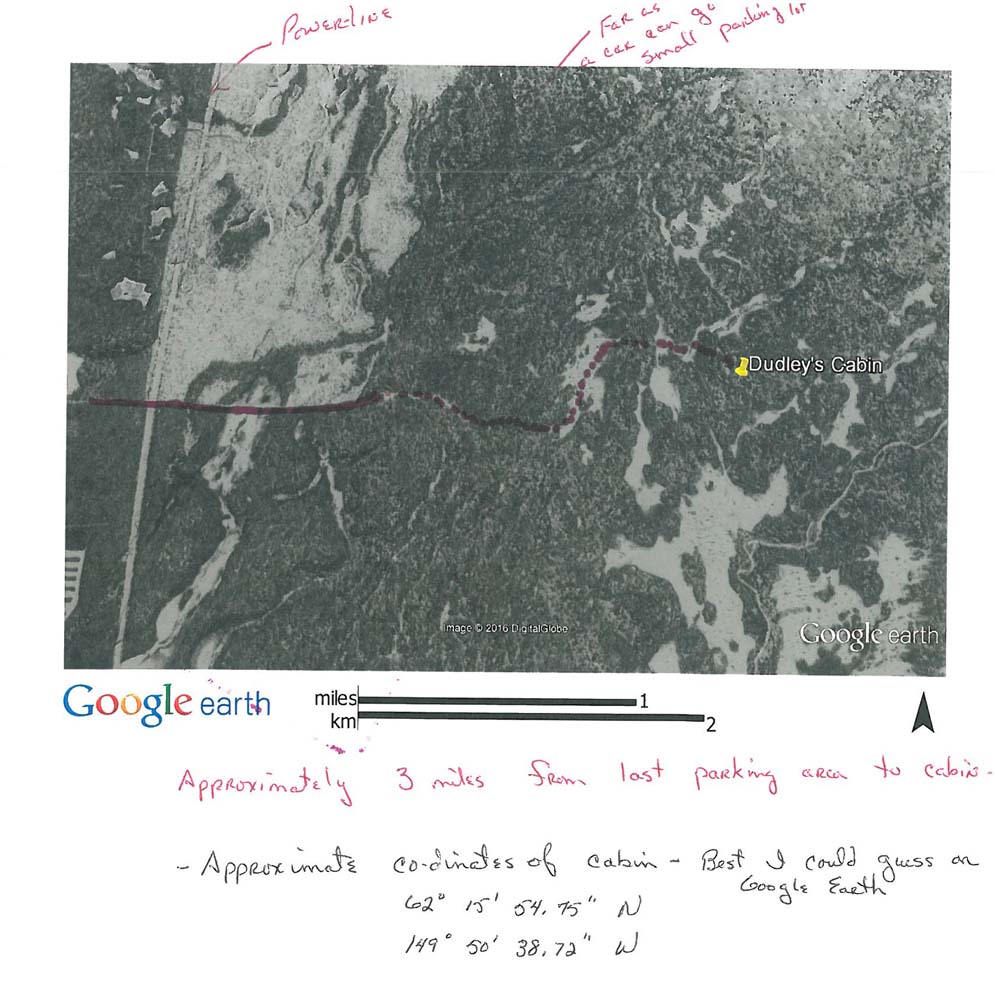 POWER-LINE
FAR as
a car can go
small parking lot
Dudley's Cabin
Image © 2016 DigitalGlobe
Google earth
Google earth
miles 1
km 2
Approximately 3 miles from last parking area to cabin.
- Approximate co-dinates of cabin - Best I could guess on
Google Earth
62° 15' 54.75" N
149° 50' 38.72" W